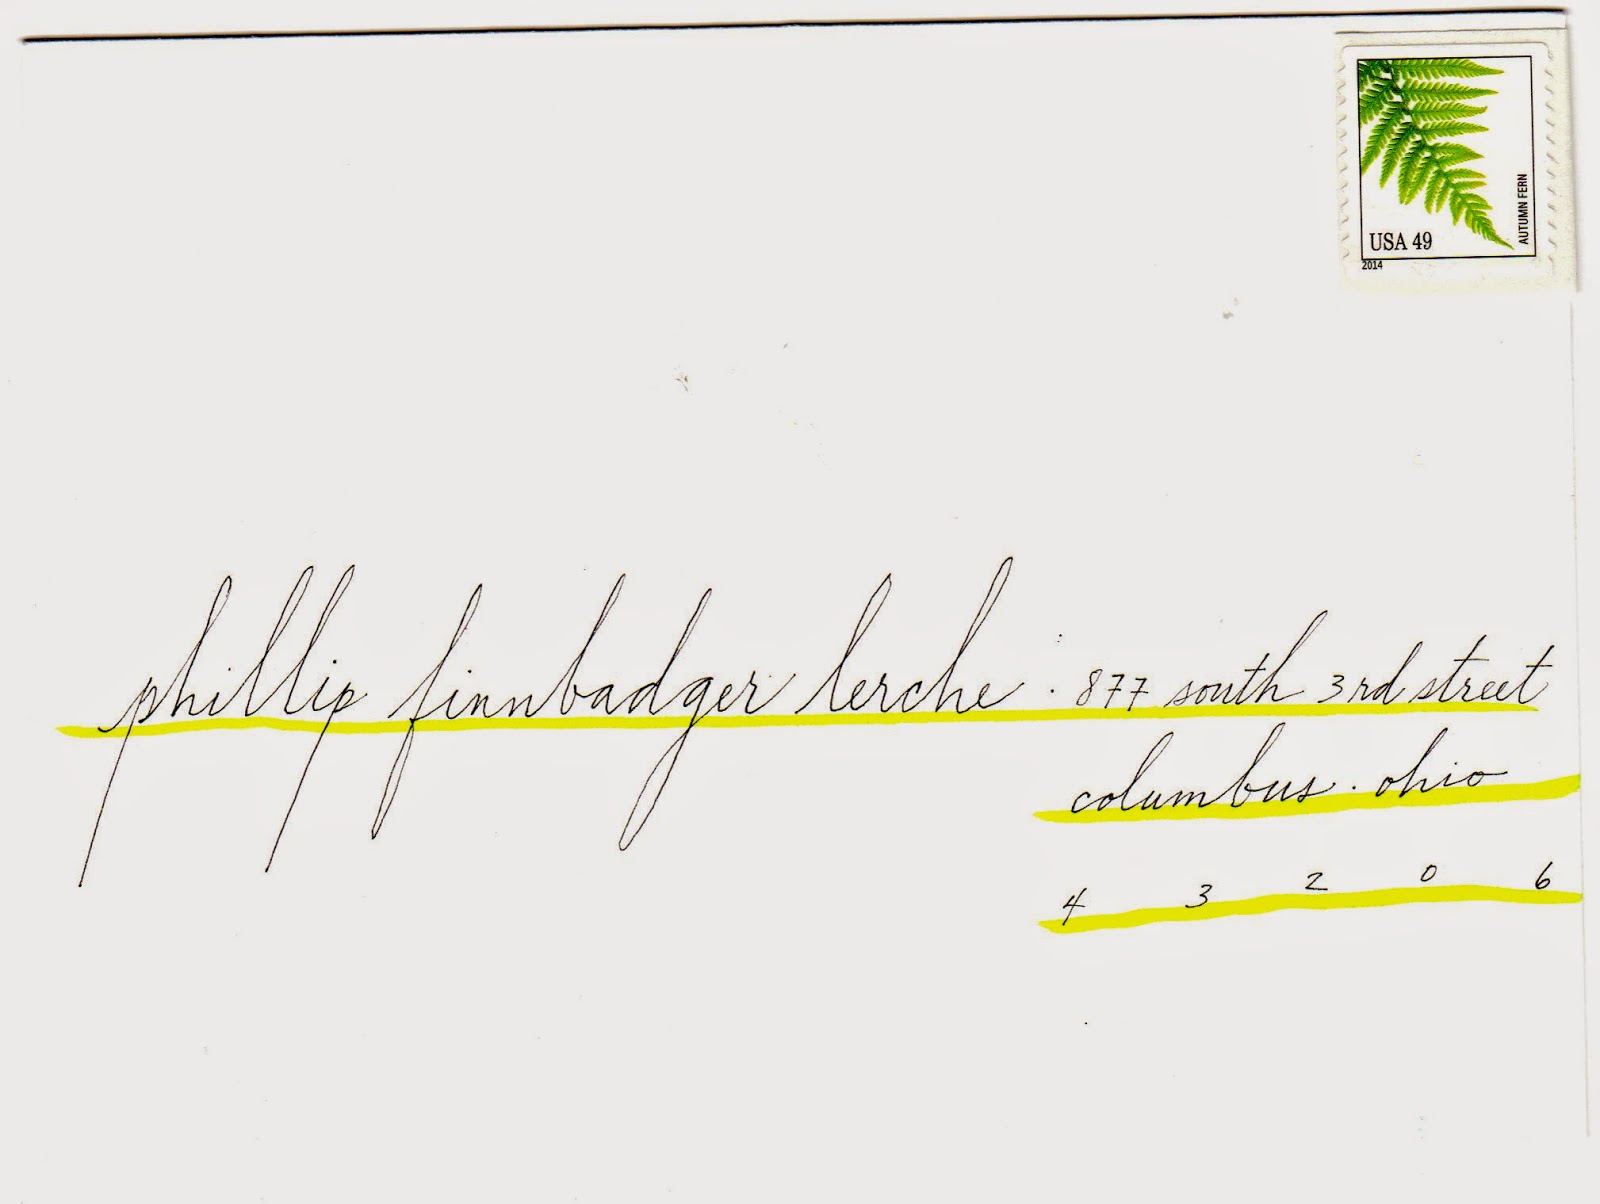 USA 49
AUTUMN FERN
2014
phillip finnbadger lerche · 877 south 3rd street
columbus · ohio
4 3 2 0 6